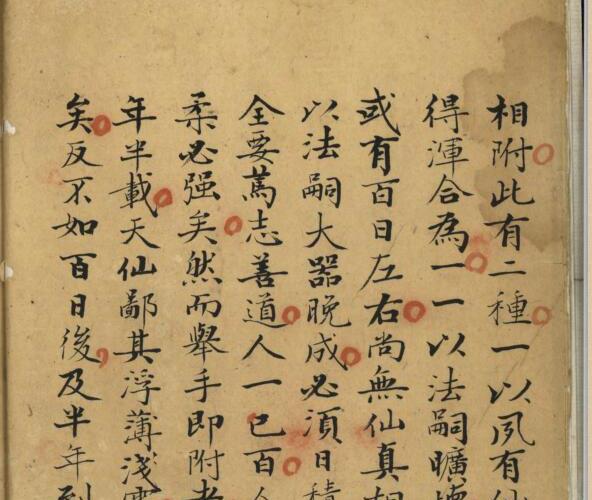 相附此有二種一以夙有仙
得渾合為一一以法嗣曠
或有百日左右尚無仙真
以法嗣大器晚成必須日積
全要篤志善道人一己百人
柔必强矣然而舉手即附者
年半載天仙鄙其浮薄淺
矣反不如百日後及半年